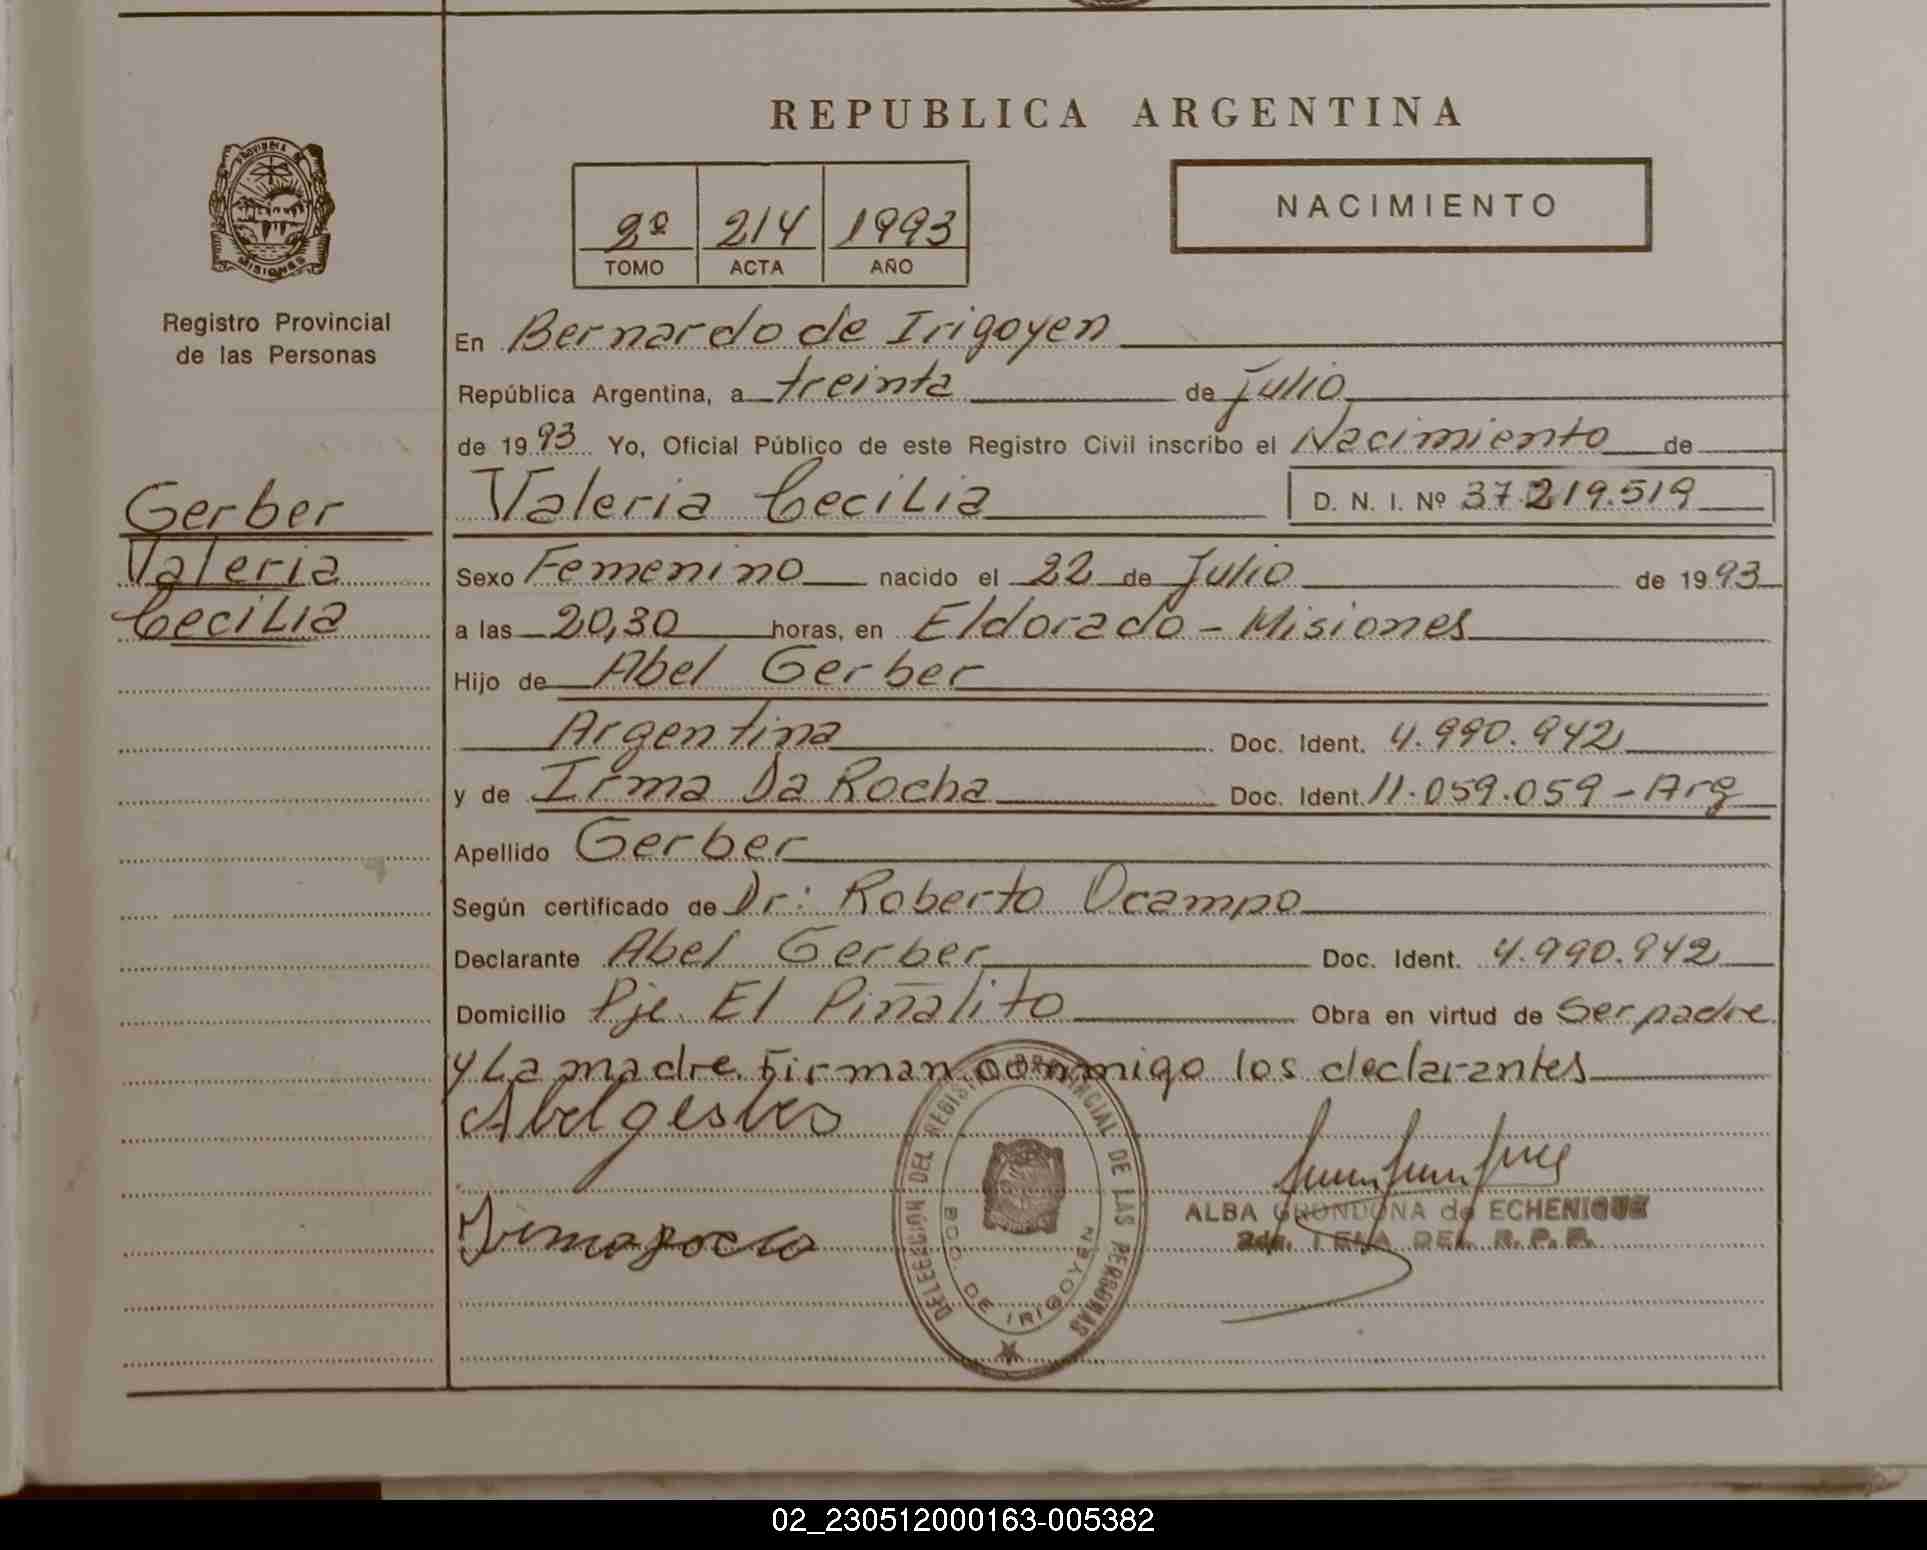 REPUBLICA ARGENTINA
PROVINCIA DE
MISIONES
Registro Provincial
de las Personas
2º 214 1993
TOMO ACTA AÑO
NACIMIENTO
En Bernardo de Irigoyen
República Argentina, a treinta de Julio
de 1993 Yo, Oficial Público de este Registro Civil inscribo el Nacimiento de
Gerber
Valeria
Cecilia
Valeria Cecilia D. N. I. Nº 37.219.519
Sexo Femenino nacido el 22 de Julio de 1993
a las 20,30 horas, en Eldorado - Misiones
Hijo de Abel Gerber
Argentina Doc. Ident. 4.990.942
y de Irma Da Rocha Doc. Ident. 11.059.059 - Arg
Apellido Gerber
Según certificado de Dr: Roberto Ocampo
Declarante Abel Gerber Doc. Ident. 4.990.942
Domicilio Pje. El Piñalito Obra en virtud de Ser padre
y La madre. Firman conmigo los declarantes
Abel gerber
Irma rocha
DELEGACIÓN DEL REGISTRO PROVINCIAL DE LAS PERSONAS
BDO. DE IRIGOYEN
ALBA GRONDONA de ECHENIQUE
DEL R. P. P.
02_230512000163-005382